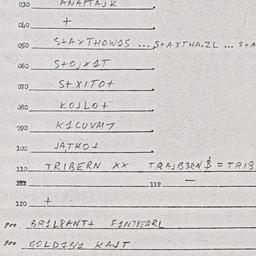 030 ANATTAJK
040 +
050 S+AXTHOW1S ... S+AXTHA.ZL ... S+A
060 S+OJX1T
070 S+XITO+
080 KOJLO+
090 K1CUVM7
100 JATKO+
110 TRIBERN XX TRAJB3RN $ = TRIB
112 —
120 +
900 BRILYANT+
900 GOLD1N1 KAJT